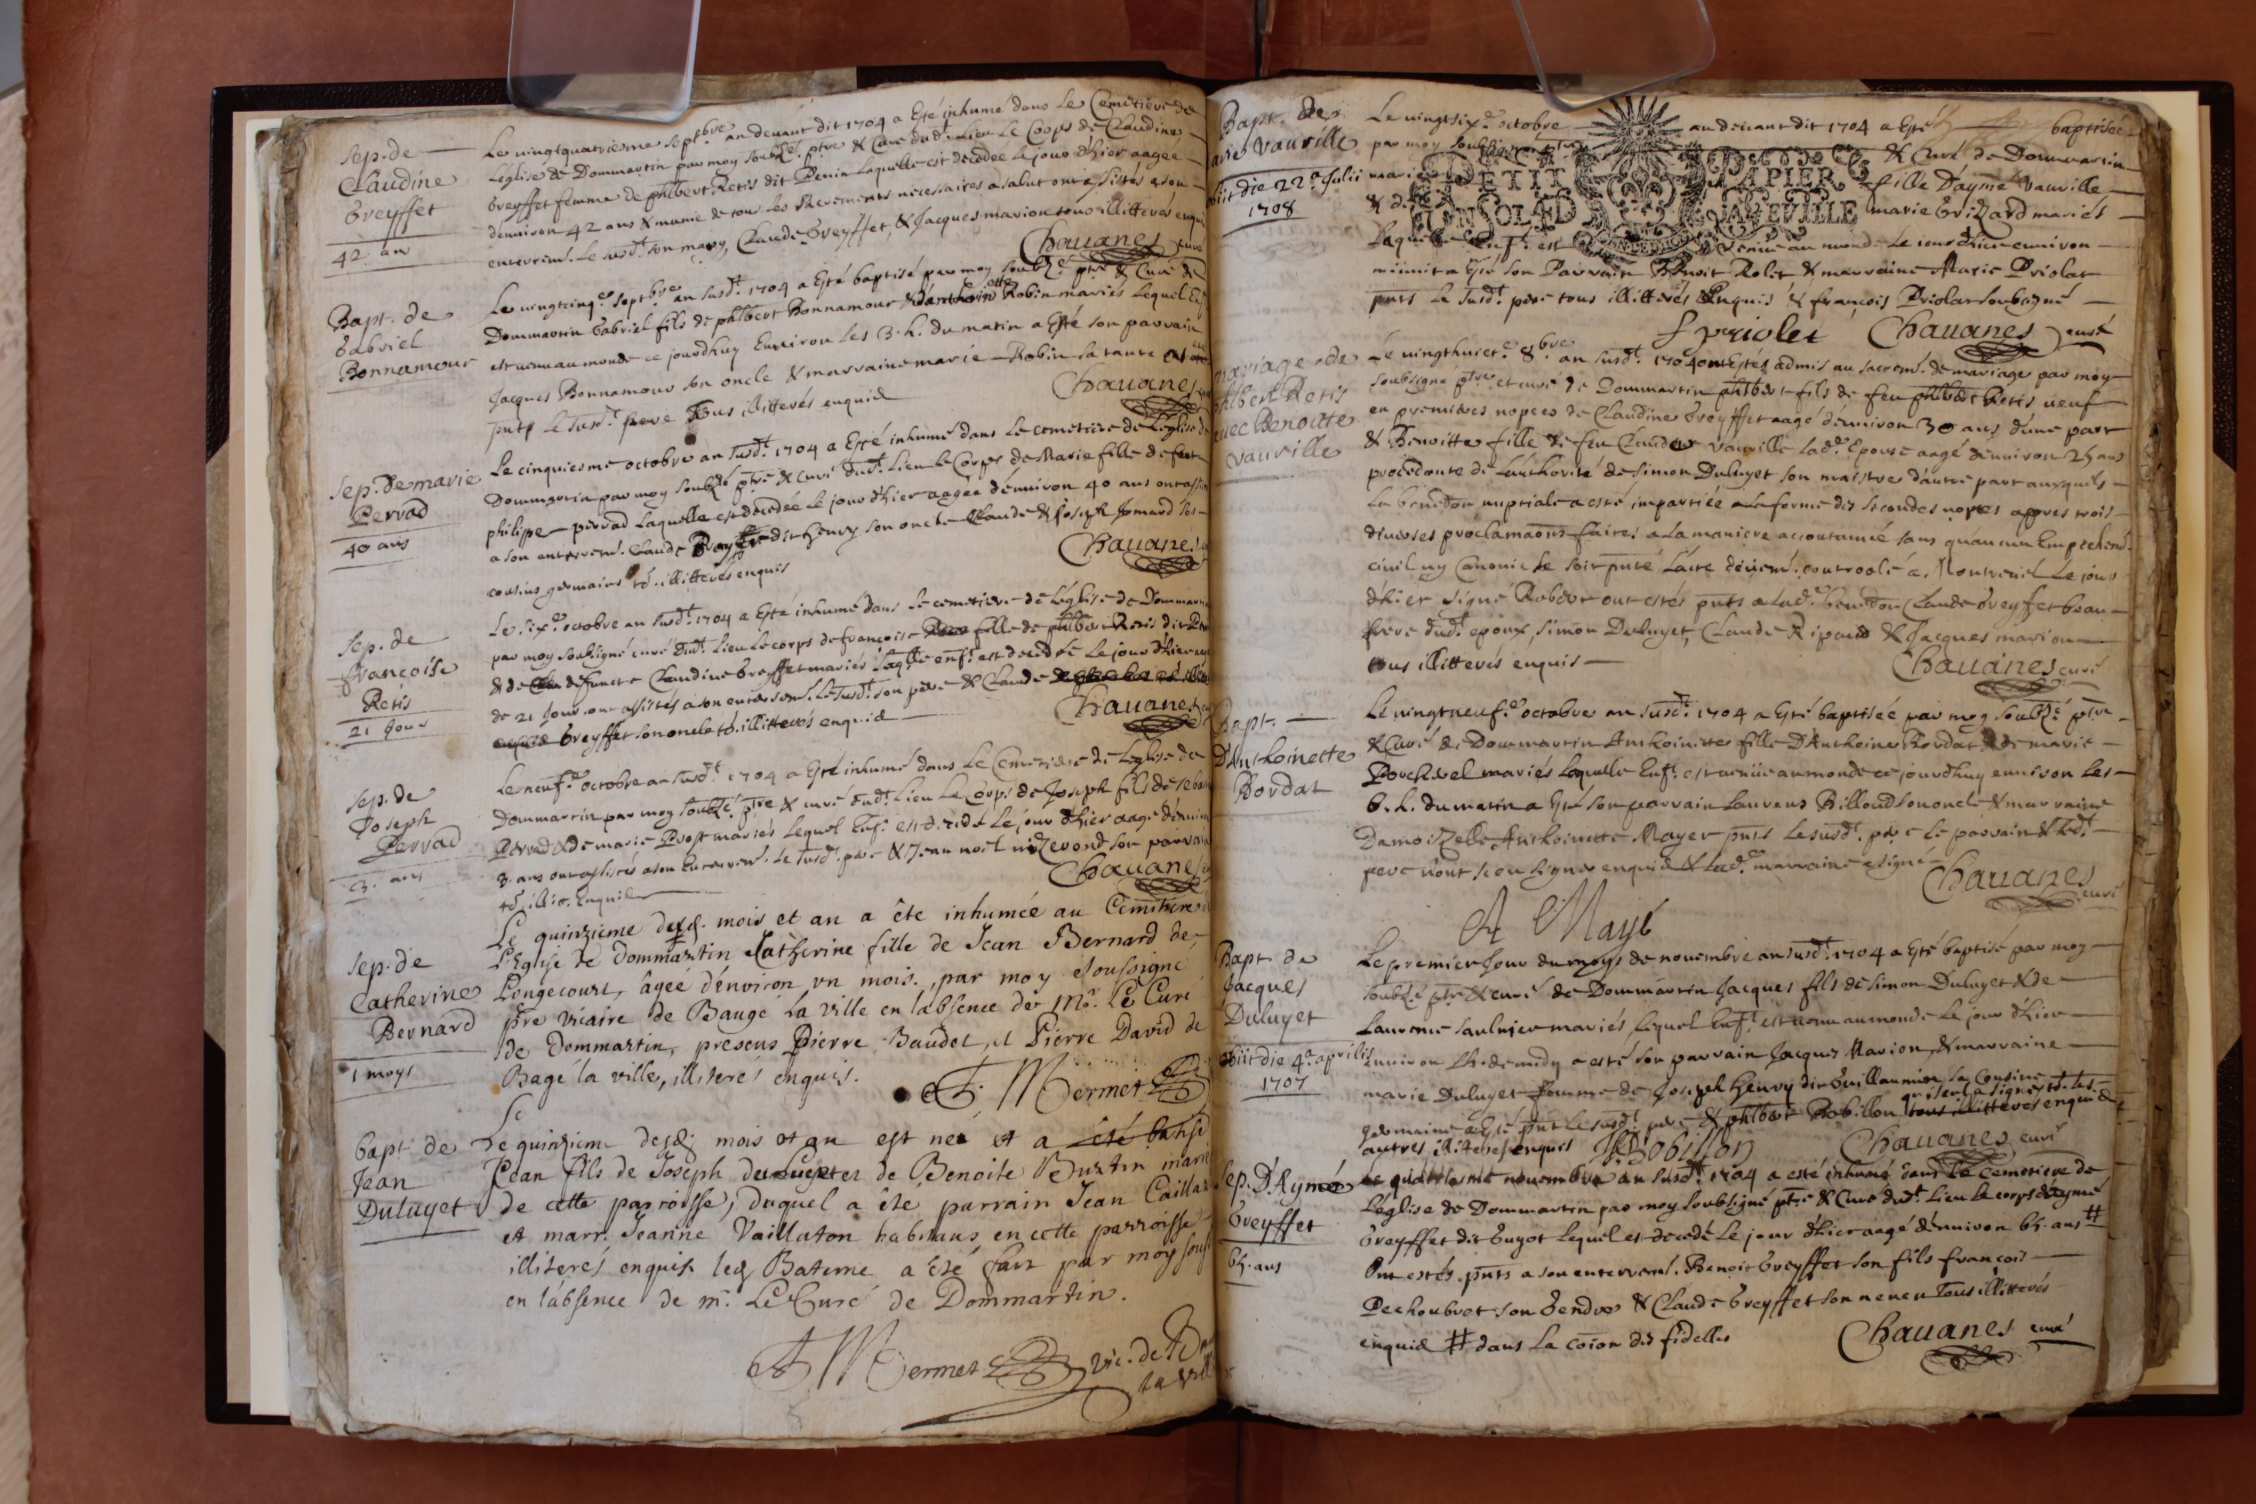 Sep. de
Claudine
Greyffet
42 an
Le vingtquatriesme septbre an devant dit 1704 a Esté inhumé dans le Cemetiere de
L'église de Dommartin par moy soubzé ptre & Curé dud. Lieu Le Corps de Claudine
Greyffet femme de philbert Retis dit Laquelle est décédée Le jour d'hier aagée
d'environ 42 ans & munie de tous Les Sacrements nécessaires a salut ont assistés a son
enterremt. Le susdt. son mary, Claude Greyffet, & Jacques marion tous illitterés enquis
Chauanes curé
Bapt. de
Gabriel
Bonnamour
Le vingtcinqe. septbre an susdt. 1704 a Esté baptisé par moy soubzé. ptre & Curé de
Dommartin Gabriel fils de philbert Bonnamour & d'anthoinette Robin mariés Lequel Enft
est venu au monde ce jourdhuy Environ les 3. h. du matin a Esté son parrain
Jacques Bonnamour son oncle & marraine marie Robin sa tante
pnts Le susdt. pere Tous illitterés enquis
Chauanes
Sep. de marie
Pervad
40 ans
Le cinquiesme octobre an susdt. 1704 a Esté inhumé dans Le cemetiere de L'église de
Dommartin par moy soubzé ptre & Curé dudt. Lieu Le Corps de Marie fille de feu
philippe pervad Laquelle est décédée Le jour d'hier aagée d'environ 40 ans ont assisté
a son enterremt. Claude Greyffet dit henry son oncle Claude & Joseph Jomard ses
cousins germains ts. illitterés enquis
Chauanes
Sep. de
françoise
Retis
21 Jour
Le sixe. octobre an susdt. 1704 a Esté inhumé dans Le cemetiere de L'église de Dommartin
par moy soubsigné curé dudt. Lieu Le corps de françoise fille de philbert Retis dit
& de defuncte Claudine Greyffet mariés Laqlle enft. est décédée Le jour d'hier
de 21 Jour ont assistés a son enterremt. Le susdt. son pere & Claude
Greyffet son oncle ts. illitterés enquis
Chauanes
Sep. de
Joseph
Pervad
3. ans
Le neufe. octobre an susdt. 1704 a Esté inhumé dans Le Cemetiere de L'eglise de
Dommartin par moy soubzé. ptre & curé dudt. Lieu Le Corps de Joseph fils de
Pervad & de marie Prost mariés Lequel Enft. est décédé Le jour d'hier aagé d'environ
3. ans ont assistés a son Enterremt. Le susdt. pere & Jean noel son parrain
ts. illit. Enquis
Chauanes
Sep. de
Catherine
Bernard
1 moys
Le quinzieme desd. mois et an a été inhumée au Cemitiere
L'Eglise de Dommartin Catherine fille de Jean Bernard de
Longecourt, âgée d'environ un mois, par moy soussigné
pre vicaire de Baugé la ville en l'absence de Mr. Le Curé
de Dommartin, presens Pierre Baudet, et Pierre David de
Bagé la ville, illiterés enquis.
Mermet
Bapt. de
Jean
Duluyet
Le
Le quinzieme desd. mois et an est neé et a été batisé
Jean fils de Joseph duluyet et de Benoite Burtin mariés
de cette parroisse, duquel a été parrain Jean Caillat
et marr. Jeanne Vaillaton habitans en cette parroisse
illiterés enquis led. Bateme a été fait par moy souss
en l'absence de mr. Le Curé de Dommartin.
Mermet vic. de
la ville
Bapt. de
Marie Vauville
obiit die 22a. Julii
1708
Le vingtsixe. octobre an devant dit 1704 a Esté baptisée
par moy soubsigné ptre & Curé de Dommartin
marie fille D'aymé Vauville
& de marie Grizard mariés
PETIT PAPIER
UN SOL 4 D LA FEVILLE
Laquelle Enft. est venüe au monde Le jour d'hier environ
minuit a Esté son Parrain Benoit Rolet & marraine Marie Priolat
pnts Le susdt. pere tous illitterés Enquis & françois Priolat soubsigné
f priolet Chauanes curé
Mariage de
philbert Retis
avec Benoitte
Vauville
Le vingthuicte. 8bre. an susdt. 1704 ont Estés admis au sacremt. de mariage par moy
soubsigné ptre. et curé de Dommartin philbert fils de feu philbert Retis veuf
en premieres nopces de Claudine Greyffet aagé d'environ 30 ans d'une part
& Benoitte fille de feu Claude Vauville lade. Epouse aagé d'environ 25 ans
procedante de L'authorité de Simon Duluyet son maistre d'autre part auxquels
La bénédon nuptiale a esté impartiée a La forme des secondes nopces appres trois
diverses proclamaons faites a La maniere accoutumée sans qu'aucun Empechemt.
civil ny Canonic se soit pnté L'acte duemt. controolé a Montrevel Le jour
d'hier signé Robert ont estés pnts a lade. bénédon Claude Greyffet beau
frere dudt. epoux, Simon Duluyet, Claude Ripaud & Jacques marion
tous illitterés enquis
Chauanes curé
Bapt.
D'Anthoinette
Bordat
Le vingtneufe. octobre an susdt. 1704 a Esté baptisée par moy soubzé. ptre
& Curé de Dommartin Anthoinette fille D'Anthoine Bordat & de marie
Porchevel mariés Laquelle Enft. est venüe au monde ce jourdhuy environ les
6. h. du matin a Esté son parrain Laurens Billoud son oncle & marraine
Damoizelle Anthoinette Mayer pnts Le susdt. pere le parrain & led.
pere n'ont sceu signer enquis & lade. marraine a signé
Chauanes curé
A Mayé
Bapt. de
Jacques
Duluyet
obiit die 4a. aprilis
1707
Le premier Jour du moys de novembre an susdt. 1704 a Esté baptisé par moy
soubzé. ptre & curé de Dommartin Jacques fils de Simon Duluyet & de
Laurence Saulnier mariés Lequel Enft. est venu au monde Le jour d'hier
environ de midy a esté son parrain Jacques Marion, & marraine
marie Duluyet femme de Joseph henry dit Guillaumin sa Cousine
germaine a Esté pnt Le susdt. pere & philbert Robillon qui seul a signé ts. les
tous illitterés enquis
autres illiterés enquis Robillon Chauanes curé
Sep. D'Aymé
Greyffet
65. ans
Le quatriesme novembre an susdt. 1704 a esté inhumé dans Le Cemetiere de
L'eglise de Dommartin par moy soubsigné ptre & Curé dudt. Lieu Le corps d'aymé
Greyffet dit Guyot Lequel est décédé Le jour d'hier aagé d'environ 65. ans #
Ont estés pnts a son enterremt. Benoit Greyffet son fils françois
Pechoubret son Gendre & Claude Greyffet son neveu Tous illitterés
enquis # dans La coion des fidelles Chauanes curé